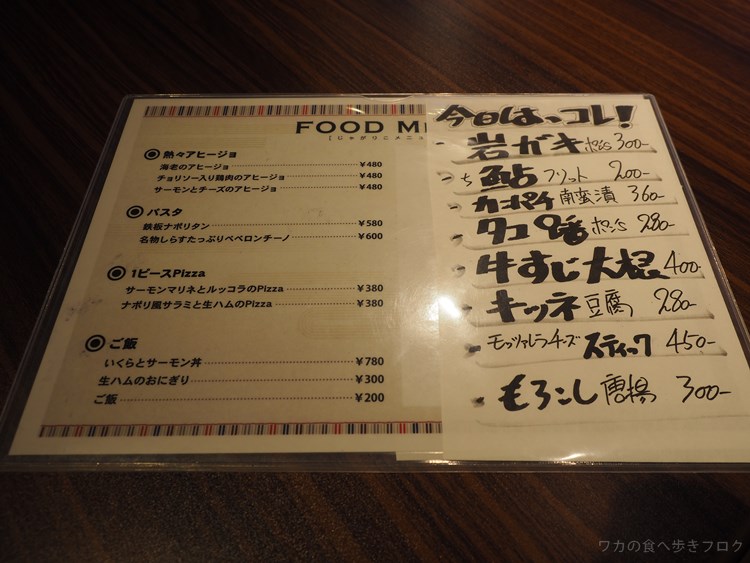 FOOD M
[じゃがりこメニュ
熱々アヒージョ
海老のアヒージョ ¥480
チョリソー入り鶏肉のアヒージョ ¥480
サーモンとチーズのアヒージョ ¥480
パスタ
鉄板ナポリタン ¥580
名物しらすたっぷりペペロンチーノ ¥600
1ピースPizza
サーモンマリネとルッコラのPizza ¥380
ナポリ風サラミと生ハムのPizza ¥380
ご飯
いくらとサーモン丼 ¥780
生ハムのおにぎり ¥300
ご飯 ¥200
今日はっコレ!
岩ガキ ポン酢 300-
鮎 フリット 200-
カンパチ 南蛮漬 360-
タコ ポン酢 280-
牛すじ大根 400-
キツネ豆腐 280-
モッツァレラチーズスティック 450-
もろこし唐揚 300-
ワカの食べ歩きブログ